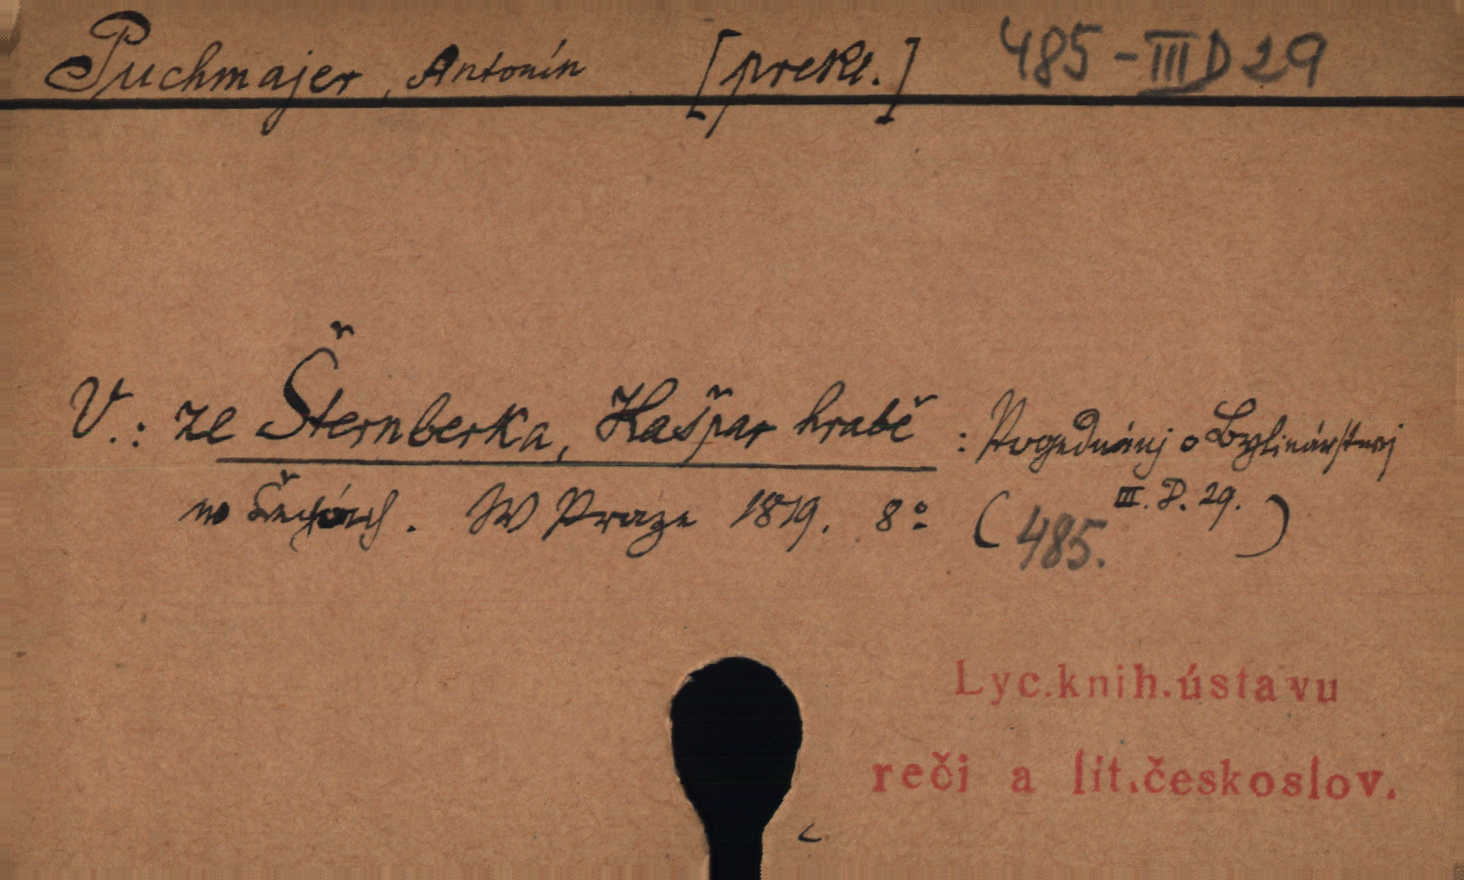 Puchmajer, Antonín [prekl.] 485-III D 29
V.: ze Šternberka, Kašpar hrabě : Pogednánj o Bylinářstwj
w Čechách. W Praze 1819. 8° (485. III. D. 29.)
Lyc.knih.ústavu
reči a lit.českoslov.